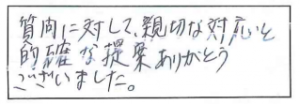 質問に対して、親切な対応と
的確な提案ありがとう
ございました。